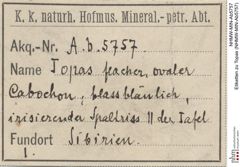 K. k. naturh. Hofmus. Mineral.-petr. Abt.
Akq.-Nr. A.b.5757.
Name Topas flacher, ovaler
Cabochon, blassbläulich,
irisierender Spaltriss II der Tafel
Fundort Sibirien.
NHMW-MIN-Ab5757
Etiketten zu Topas (NHMW-MIN-Ab5757)